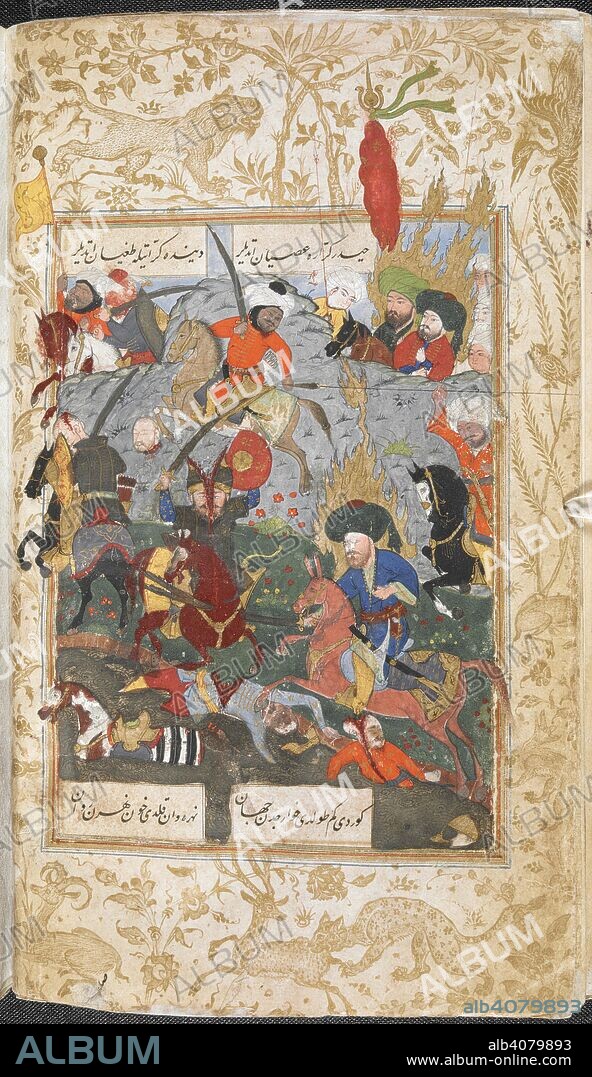 حیدر کراره عصیان اتدیلر
دیننده کر اتیله طغیان اتدیلر
کوردی کم طولدی خوارجدن جهان
نهروان قلدی خون نهرن روان
ALBUM
alb4079893
ALBUM
alb4079893
www.album-online.com